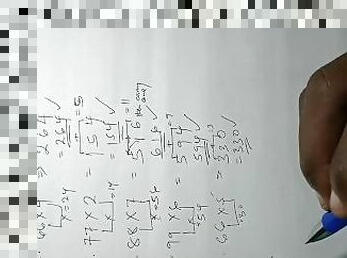 66 × 4 ⇒ 264 ✓
x=24 = 264
77 × 2 = 154 = 5
x=14 = 154 ✓
88 × 7 = 5 6 = 11
x=56 616 ✓
99 × 6 = 594 ✓
x=54 594
66 × 5 = 330
x=30 = 330 ✓